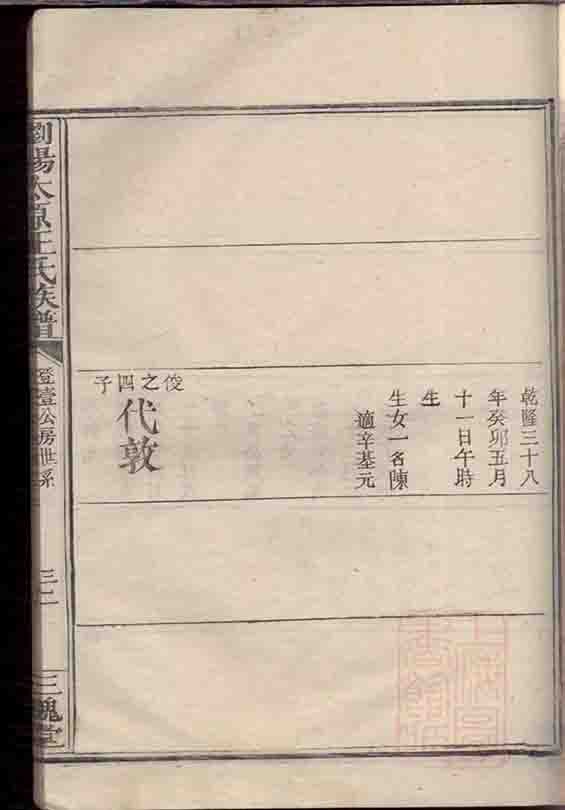 乾隆三十八
年癸卯五月
十一日午時
生
生女一名陳
適辛基元
俊之四子
代敦
瀏陽太原王氏族譜
登壹公房世系
三二
三槐堂